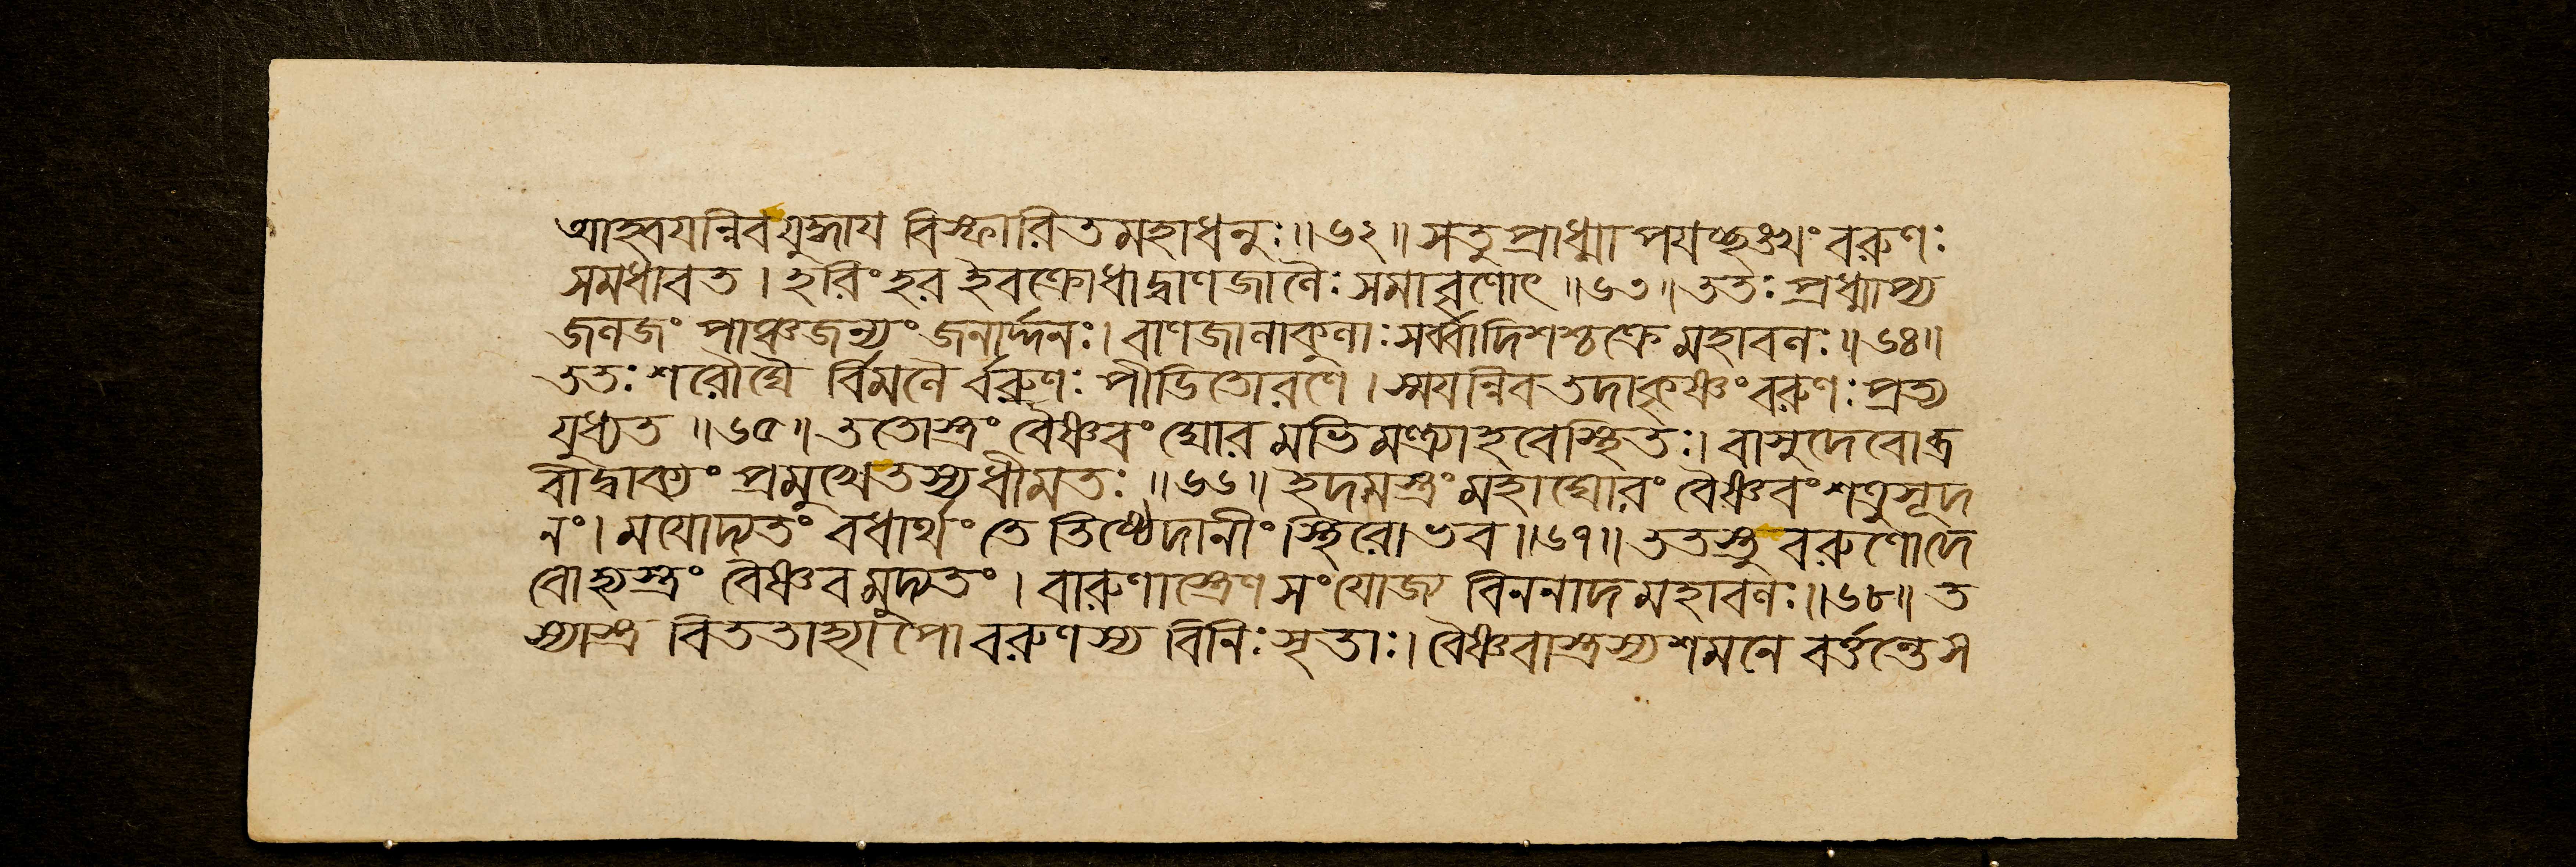 আহ্বযন্নিবযুদ্ধায বিস্ফারিতমহাধনুঃ॥৬২॥ সতু প্রাধ্মাপযচ্ছঙ্খং বরুণঃ
সমধাবত । হরিং হর ইবক্রোধাদ্বাণজালৈঃ সমাবৃণোৎ ॥৬৩॥ ততঃ প্রধ্মাপ্য
জলজং পাঞ্চজন্যং জনার্দ্দনঃ। বাণজালাকুলাঃ সর্ব্বাদিশশ্চক্রে মহাবলঃ॥৬৪॥
ততঃ শরৌঘৈ র্বিমলৈ র্বরুণঃ পীডিতোরণে । স্মযন্নিবতদাকৃষ্ণং বরুণঃ প্রত্য
যুধ্যত ॥৬৫॥ ততোস্ত্রং বৈষ্ণবং ঘোর মভিমন্ত্র্যাহবেস্থিতঃ। বাসুদেবোব্র
বীদ্বাক্যং প্রমুখেতস্যধীমতঃ ॥৬৬॥ ইদমস্ত্রং মহাঘোরং বৈষ্ণবং শত্রুসূদ
নং। মযোদ্যতং বধার্থং তে তিষ্ঠেদানীং স্থিরোভব॥৬৭॥ ততস্তু বরুণোদে
বোহ্যস্ত্রং বৈষ্ণবমুদ্যতং । বারুণাস্ত্রেণ সংযোজ্য বিননাদ মহাবলঃ॥৬৮॥ ত
স্যাস্ত্র বিততাহ্যাপো বরুণস্য বিনিঃসৃতাঃ। বৈষ্ণবাস্ত্রস্যশমনে বর্ত্তন্তেস